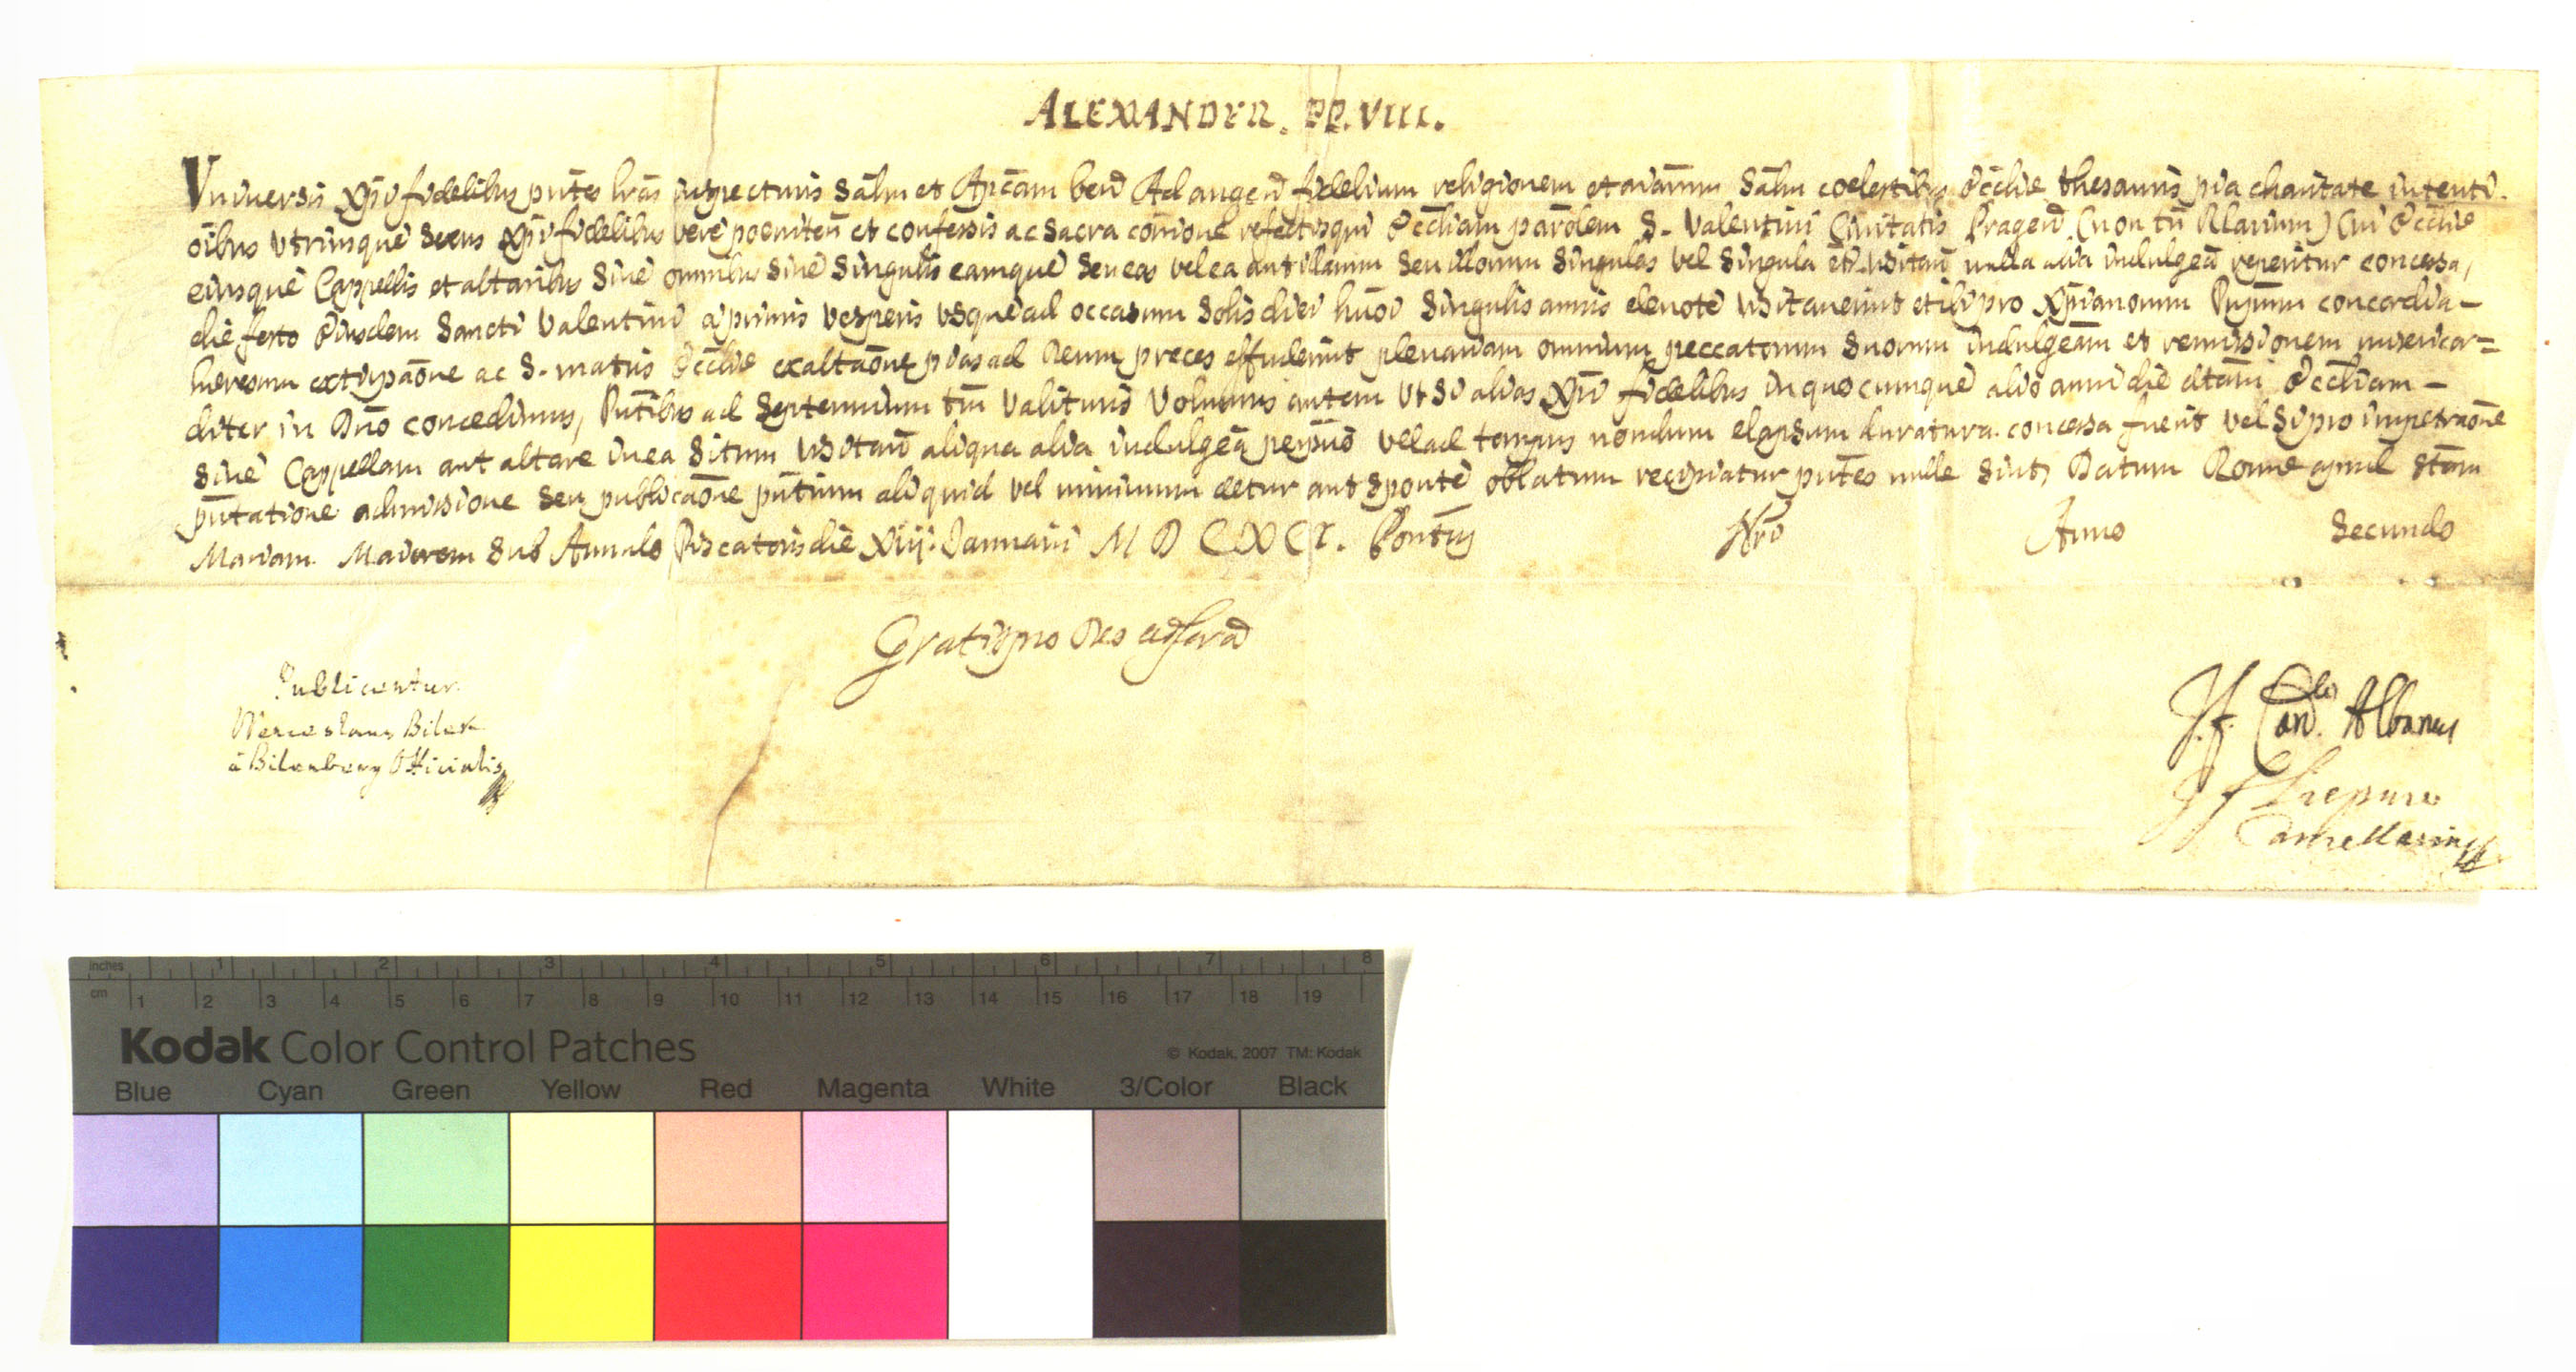 ALEXANDER. PP. VIII.
Vniversis Xpi fidelibus pntes lras inspecturis Salm et Aplcam bend Ad augend fidelium religionem et aiarum Salm coelestibus Eccliae thesauris pia charitate intenti.
oibus vtriusque sexus Xpi fidelibus vere poeniten et confessis ac Sacra coione refectisqui Eccliam parolem S. Valentini Civitatis Pragen (non tn Rlarium) Cui Eccliae
eiusque Cappellis et altaribus Sive omnibus Sive Singulis eamque Seu eas vel ea aut illarum Seu illorum Singulas vel Singula eti visitan nulla alia indulgea reperitur concessa,
die festo Eiusdem Sancti Valentini a primis Vesperis vsque ad occasum Solis diei huoi Singulis annis devote visitaverint et ibi pro Xpianorum Pnpum concordia -
heresum extirpaone ac S. matris Eccliae exaltaone pias ad Deum preces effuderint plenariam omnium peccatorum Suorum indulgeam et remissionem misericor=
diter in Dno concedimus, Pntibus ad Septennium tm Valituris Volumus autem vt Si alias Xpi fidelibus in quocumque alio anni die dtam Eccliam -
Sive Cappellam aut altare in ea Situm visitan aliqua alia indulgea perpuo vel ad tempus nondum elapsum duratura concessa fuerit vel Si pro impetraone
pntatione admissione Seu publicaone pntium aliquid vel minimum detur aut Sponte oblatum recipiatur pntes nulle Sint, Datum Rome apud Stam
Mariam Maiorem Sub Annulo Piscatoris die XIII. Januarii M D C X C I. Pontus Nri Anno Secundo
Gratis pro Deo et Scra
Publicentur.
Wenceslaus Bilek
à Bilenberg Officialis
J. F. Cardlis Albanus
J F Liepure
Cancellarius